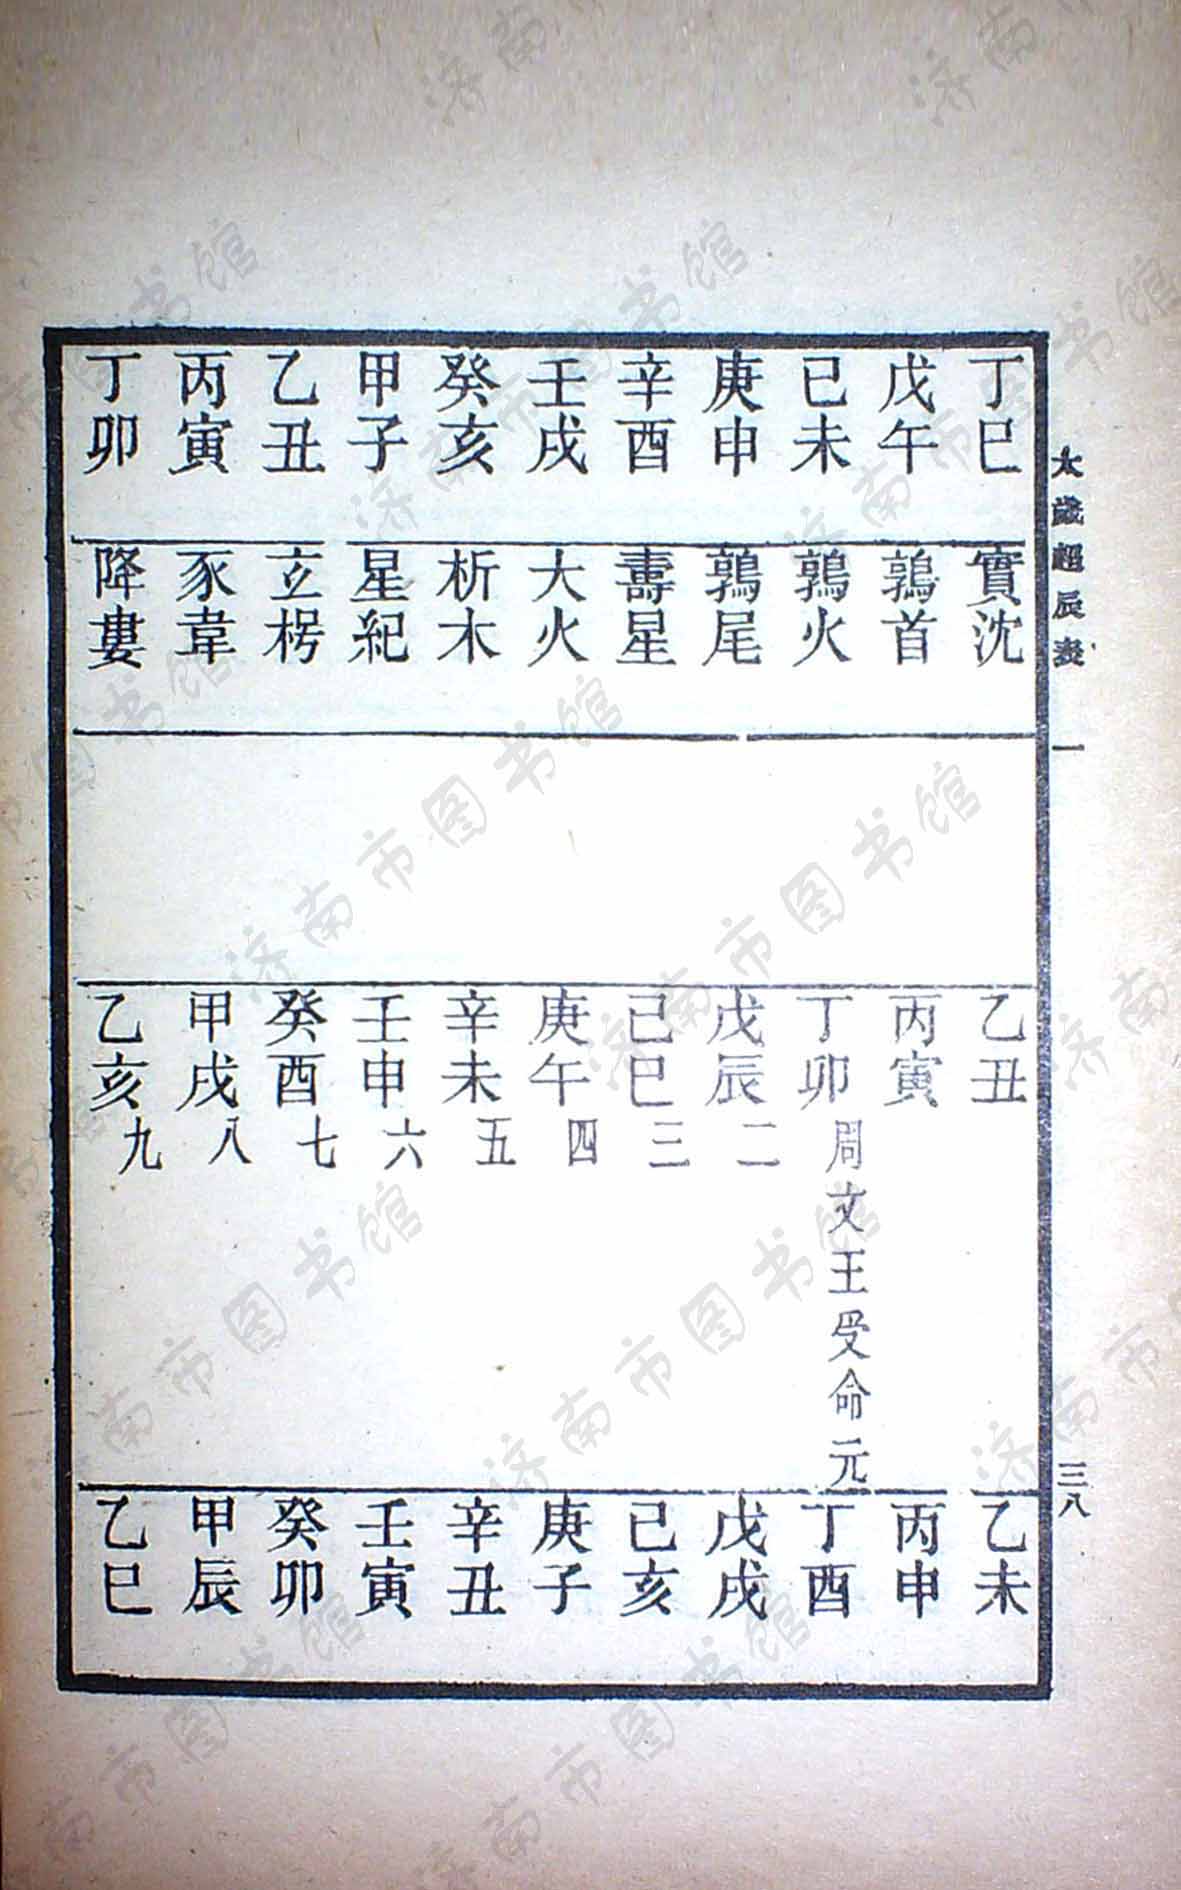 太歲超辰表 一 三八
丁巳 實沈 乙丑 乙未
戊午 鶉首 丙寅 丙申
己未 鶉火 丁卯 周文王受命元 丁酉
庚申 鶉尾 戊辰 二 戊戌
辛酉 壽星 己巳 三 己亥
壬戌 大火 庚午 四 庚子
癸亥 析木 辛未 五 辛丑
甲子 星紀 壬申 六 壬寅
乙丑 玄枵 癸酉 七 癸卯
丙寅 豕韋 甲戌 八 甲辰
丁卯 降婁 乙亥 九 乙巳
济南市图书馆